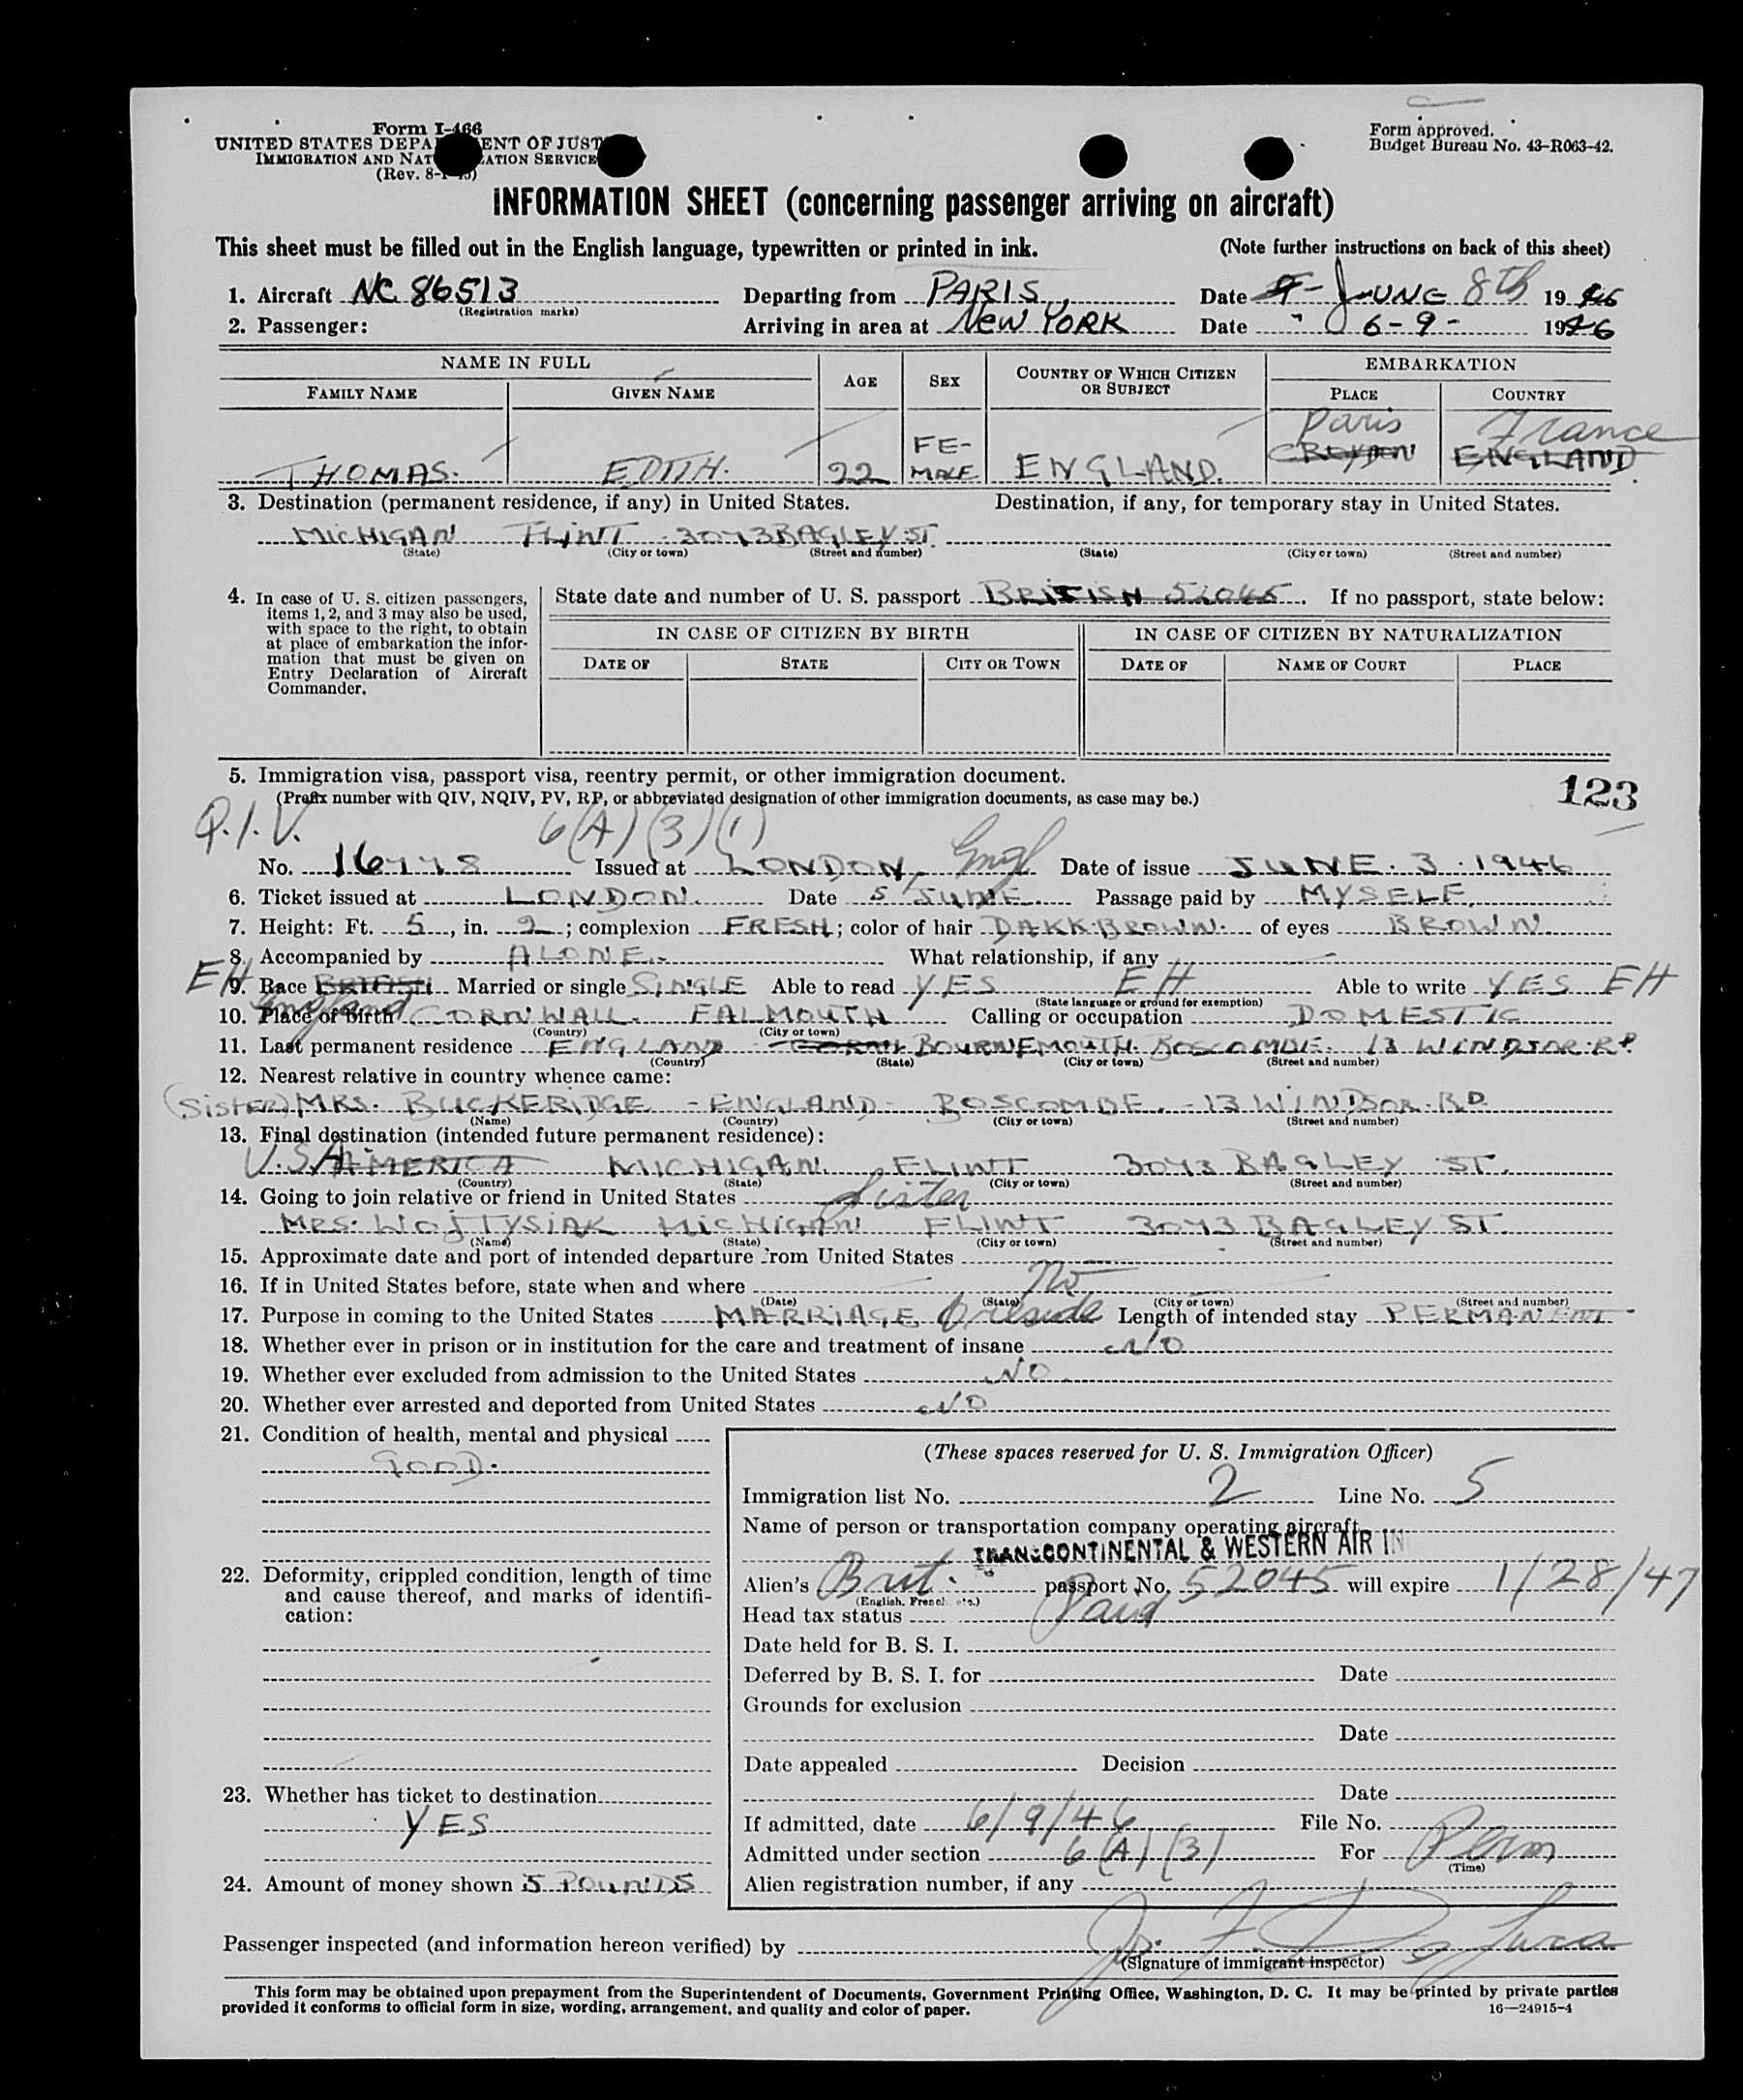 Form I-466
UNITED STATES DEPA ENT OF JUST
IMMIGRATION AND NAT ATION SERVICE
(Rev. 8-1-45)
Form approved.
Budget Bureau No. 43-R063-42.
INFORMATION SHEET (concerning passenger arriving on aircraft)
This sheet must be filled out in the English language, typewritten or printed in ink. (Note further instructions on back of this sheet)
1. Aircraft NC 86513 Departing from PARIS, Date JUNE 8th 1946
(Registration marks)
2. Passenger: Arriving in area at NEW YORK Date " 6-9- 1946
NAME IN FULL AGE SEX COUNTRY OF WHICH CITIZEN OR SUBJECT EMBARKATION
FAMILY NAME GIVEN NAME PLACE COUNTRY
Paris France
THOMAS. EDITH. 22 FE-MALE ENGLAND. CROYDON ENGLAND.
3. Destination (permanent residence, if any) in United States. Destination, if any, for temporary stay in United States.
MICHIGAN FLINT 3073 BAGLEY ST.
(State) (City or town) (Street and number) (State) (City or town) (Street and number)
4. In case of U. S. citizen passengers, items 1, 2, and 3 may also be used, with space to the right, to obtain at place of embarkation the information that must be given on Entry Declaration of Aircraft Commander.
State date and number of U. S. passport BRITISH 52045. If no passport, state below:
IN CASE OF CITIZEN BY BIRTH IN CASE OF CITIZEN BY NATURALIZATION
DATE OF STATE CITY OR TOWN DATE OF NAME OF COURT PLACE
5. Immigration visa, passport visa, reentry permit, or other immigration document.
(Prefix number with QIV, NQIV, PV, RP, or abbreviated designation of other immigration documents, as case may be.)
123
Q.I.V. 6(A)(3)(1)
No. 16778 Issued at LONDON, Engl Date of issue JUNE. 3. 1946
6. Ticket issued at LONDON. Date 5 JUNE Passage paid by MYSELF.
7. Height: Ft. 5, in. 2; complexion FRESH; color of hair DARK BROWN. of eyes BROWN
8. Accompanied by ALONE.- What relationship, if any
EH
9. Race BRITISH Married or single SINGLE Able to read YES EH Able to write YES EH
(State language or ground for exemption)
England
10. Place of birth CORNWALL. FALMOUTH Calling or occupation DOMESTIC
(Country) (City or town)
11. Last permanent residence ENGLAND BOURNEMOUTH. BOSCOMBE. 13 WINDSOR. RD.
(Country) (State) (City or town) (Street and number)
12. Nearest relative in country whence came:
(SISTER) MRS. BUCKERIDGE - ENGLAND - BOSCOMBE. - 13 WINDSOR. RD
(Name) (Country) (City or town) (Street and number)
13. Final destination (intended future permanent residence):
U.S.A. AMERICA MICHIGAN. FLINT 3073 BAGLEY ST.
(Country) (State) (City or town) (Street and number)
14. Going to join relative or friend in United States Sister
MRS. WOJTYSIAK MICHIGAN FLINT 3073 BAGLEY ST.
(Name) (State) (City or town) (Street and number)
15. Approximate date and port of intended departure from United States
16. If in United States before, state when and where No
(Date) (State) (City or town) (Street and number)
17. Purpose in coming to the United States MARRIAGE & reside Length of intended stay PERMANENT
18. Whether ever in prison or in institution for the care and treatment of insane NO
19. Whether ever excluded from admission to the United States NO
20. Whether ever arrested and deported from United States NO
21. Condition of health, mental and physical
GOOD.
22. Deformity, crippled condition, length of time and cause thereof, and marks of identification:
23. Whether has ticket to destination
YES
24. Amount of money shown 5 POUNDS
(These spaces reserved for U. S. Immigration Officer)
Immigration list No. 2 Line No. 5
Name of person or transportation company operating aircraft
TRANSCONTINENTAL & WESTERN AIR IN
Alien's Brit. passport No. 52045 will expire 1/28/47
(English, French, etc.)
Head tax status Paid
Date held for B. S. I.
Deferred by B. S. I. for Date
Grounds for exclusion
Date
Date appealed Decision
Date
If admitted, date 6/9/46 File No.
Admitted under section 6(A)(3) For Perm
(Time)
Alien registration number, if any
Passenger inspected (and information hereon verified) by
(Signature of immigrant inspector)
This form may be obtained upon prepayment from the Superintendent of Documents, Government Printing Office, Washington, D. C. It may be printed by private parties
provided it conforms to official form in size, wording, arrangement, and quality and color of paper. 16—24915-4